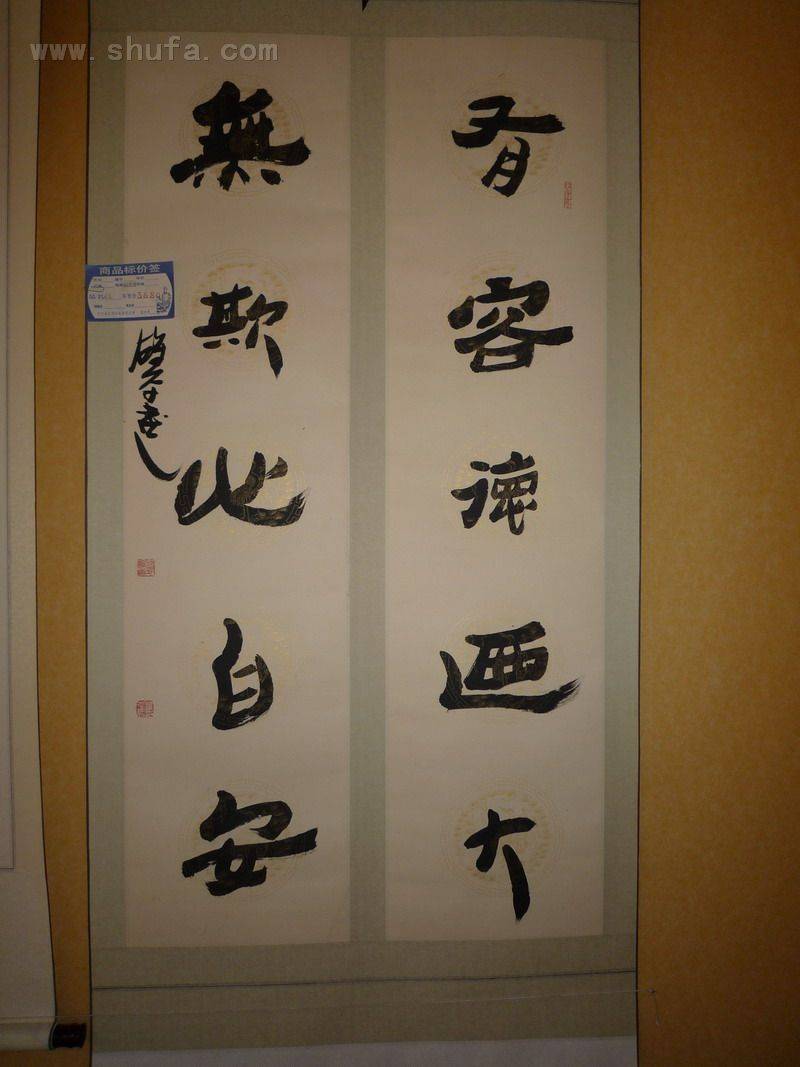 www.shufa.com
有容德迺大
無欺心自安
商品标价签